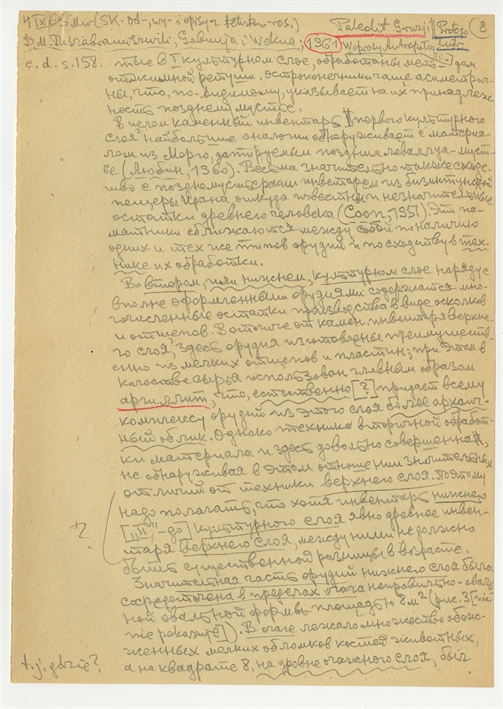 4 IX 65 Mw (SK. od-, wy- i opisy z tekstów ros.)
Paleolit Gruzji
Protoso
(8)
D. M. Tuszabramiszwili, Gabunja i Wekua, 1961 Woprosy Antropolog.
c. d. s. 158.
тые в I культурном слое, обработаны методом
отжимной ретуши. остроконечники чаще асимметрич-
ны, что, по-видимому, указывает на их принадлеж-
ность позднему мустье.
В целом каменный инвентарь "первого культурного
слоя" наибольшие аналогии обнаруживает с материа-
лом из Морго, датируемым поздним леваллуа-мусть-
е (Любин, 1960). Весьма значительно также сходс-
тво с позднемустьерским инвентарем из бизитунской
пещеры Ирана откуда известны и незначительные
остатки древнего человека (Coon, 1951). Эти па-
мятники сближаются между собой по наличию
одних и тех же типов орудий и по сходству в тех-
нике их обработки.
Во втором, или нижнем, культурном слое наряду с
вполне оформленными орудиями содержатся мно-
гочисленные остатки производства в виде осколков
и отщепов. В отличие от камен. инвентаря верхне-
го слоя, здесь орудия изготовлены преимуществ-
енно из мелких отщепов и пластин; при этом в
качестве сырья использован главным образом
аргиллит, что, естественно [?] придает всему
комплексу орудий из этого слоя более архаич-
ный облик. Однако техника вторичной обработ-
ки материала и здесь довольно совершенная,
не обнаруживая в этом отношении значительных
отличий от техники верхнего слоя. Поэтому
надо полагать, что хотя инвентарь нижнего
["II"]-го культурного слоя явно древнее инвен-
таря верхнего слоя, между ними не должно
быть существенной разницы в возрасте.
?
Значительная часть орудий нижнего слоя была
сосредоточена в пределах очага неправильно-оваль-
ной овальной формы площадью 8 м² (рис. 3 [nie
pokazuję]). В очаге лежало множество обож-
женных мелких обломков костей животных,
а на квадрате 8, на уровне очажного слоя, был
t. j. gdzie?